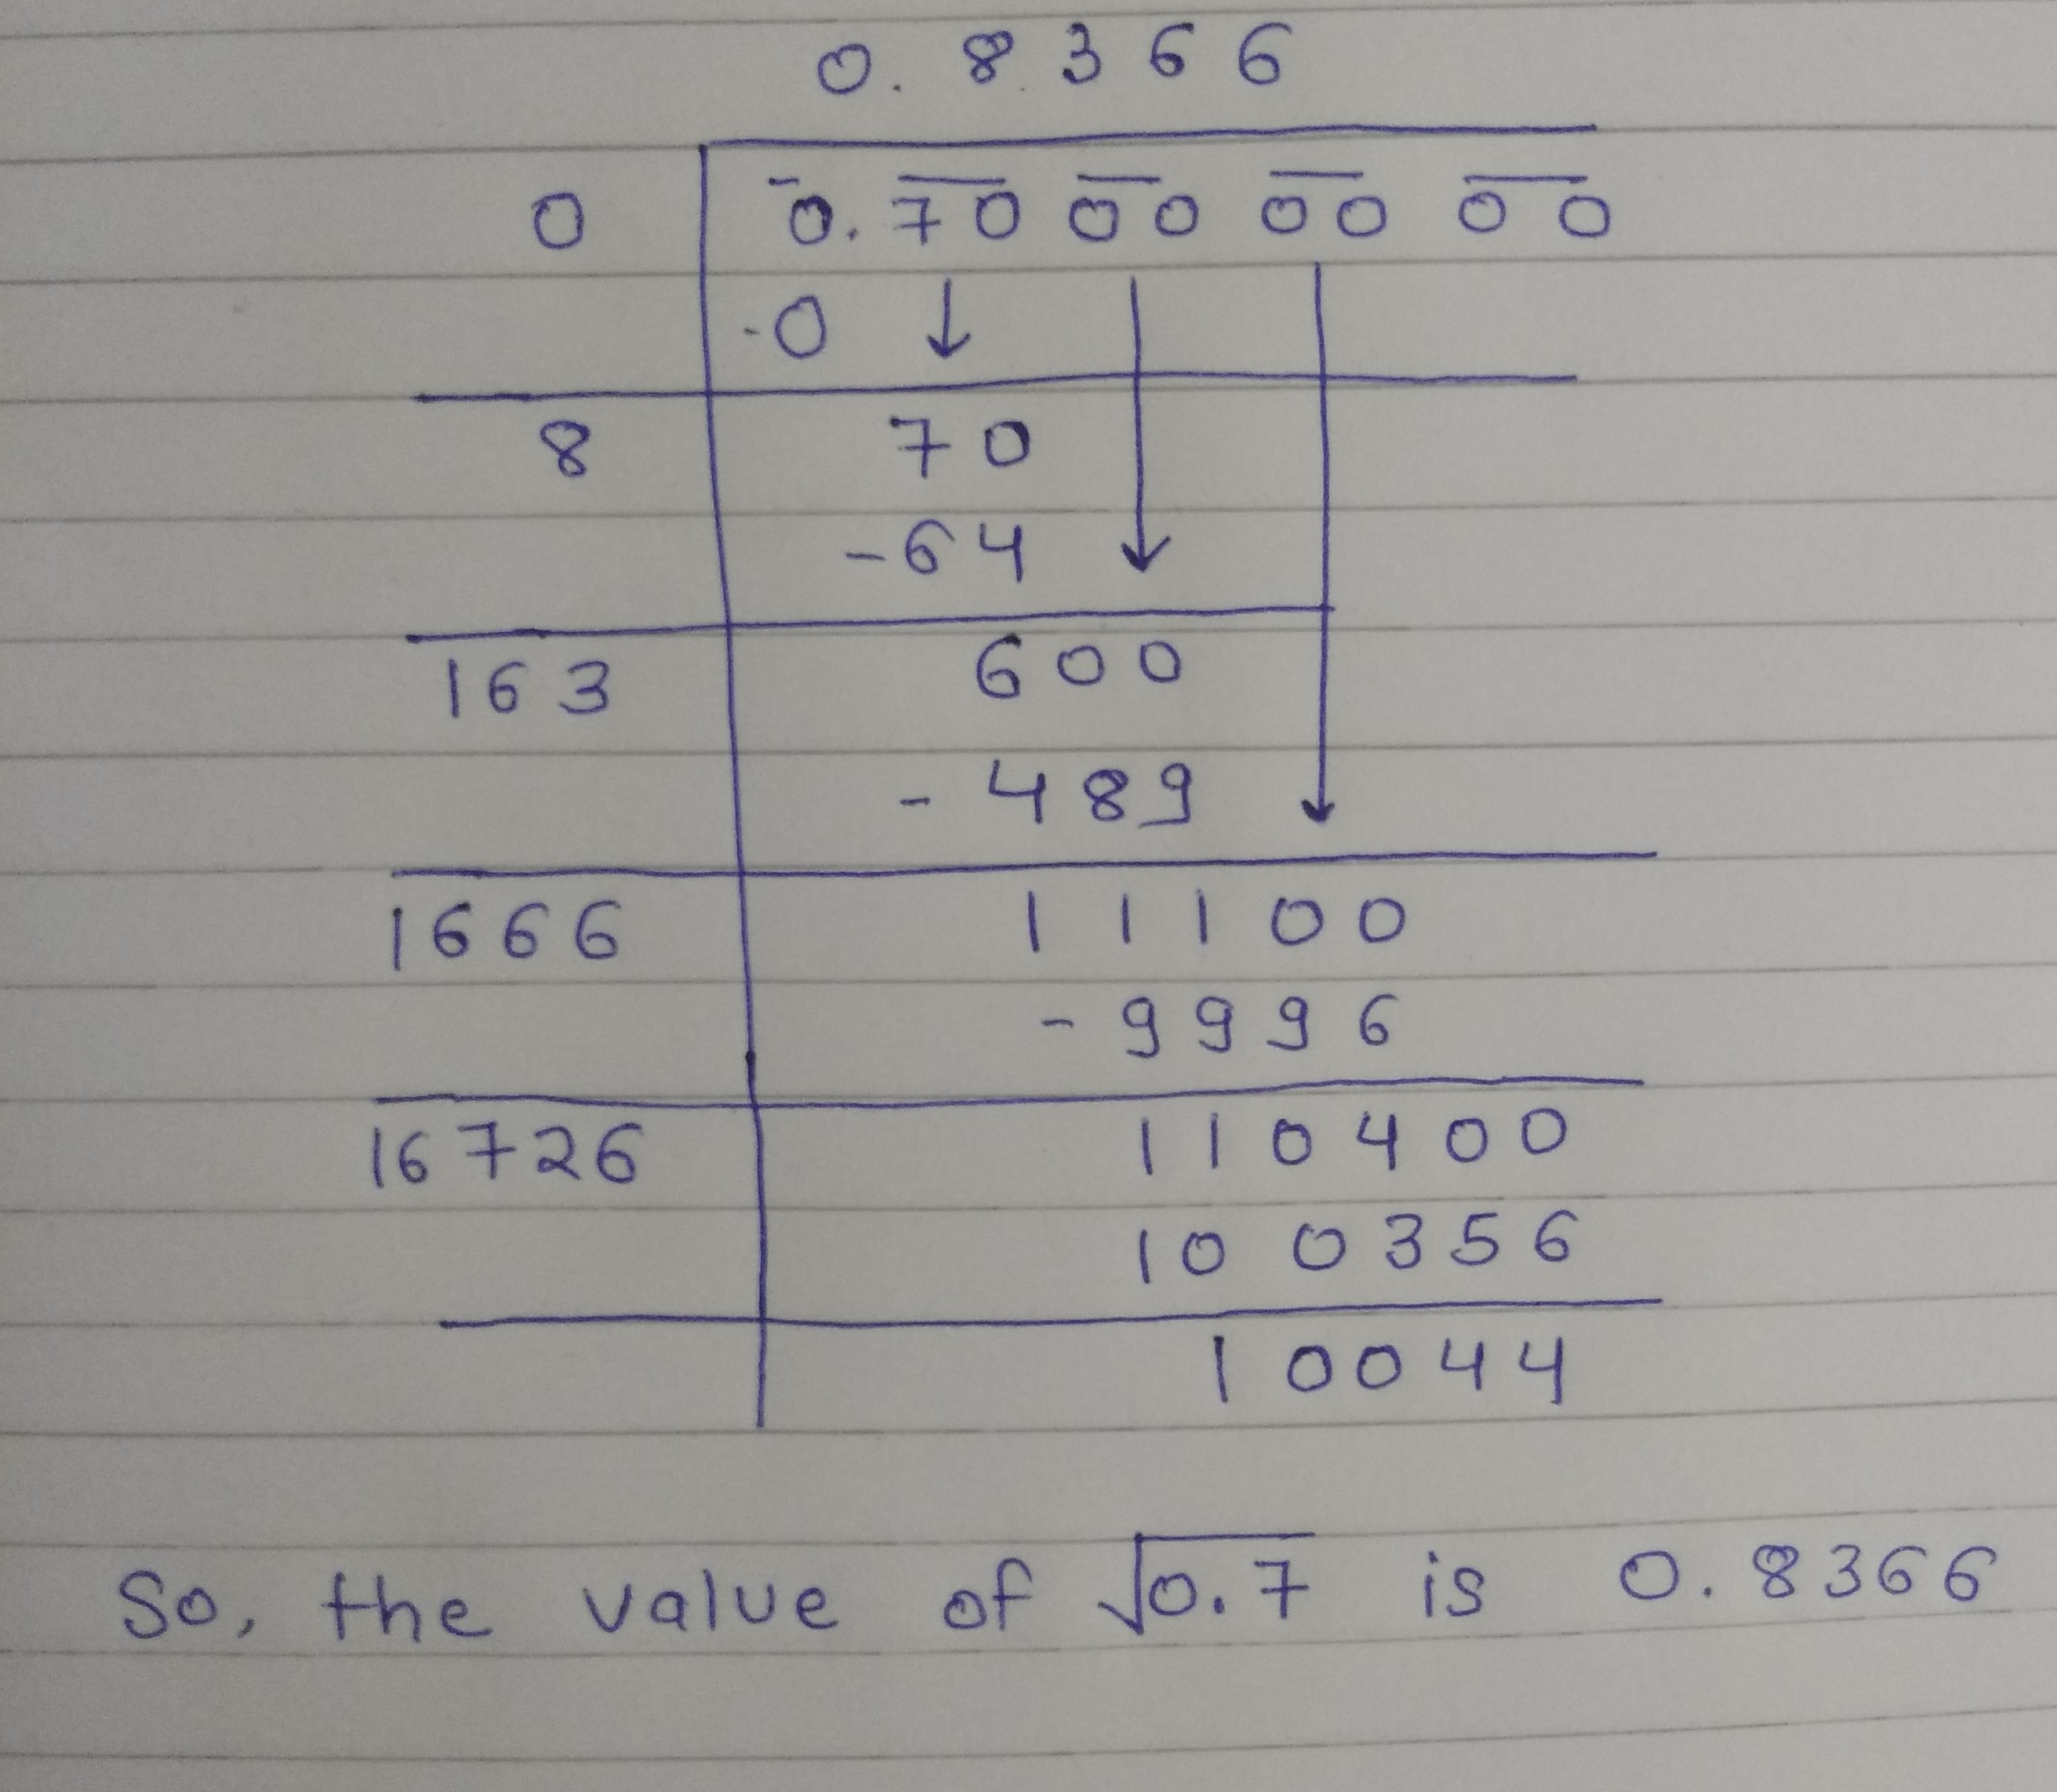 0.8366
0 0.70 00 00 00
-0
8 70
-64
163 600
-489
1666 11100
-9996
16726 110400
100356
10044
So, the value of √0.7 is 0.8366